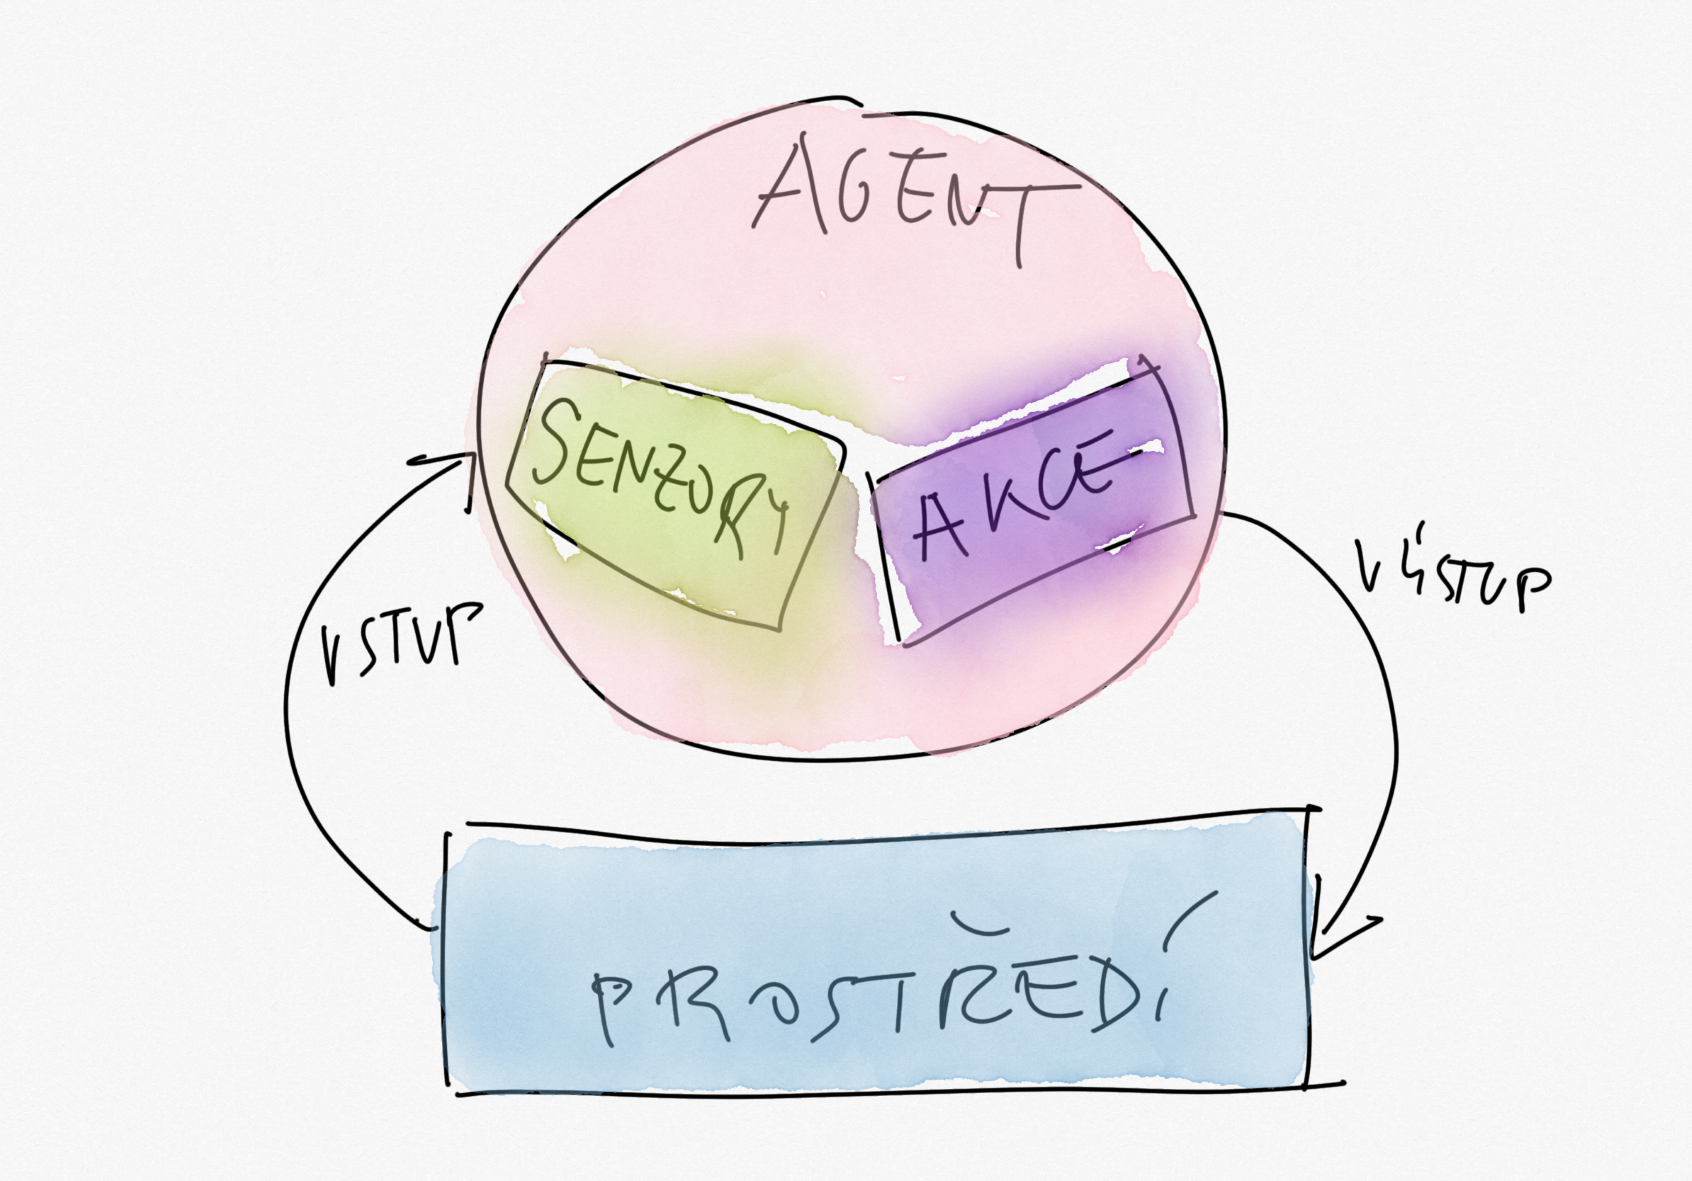 AGENT
SENZORY
AKCE
VSTUP
VÝSTUP
PROSTŘEDÍ